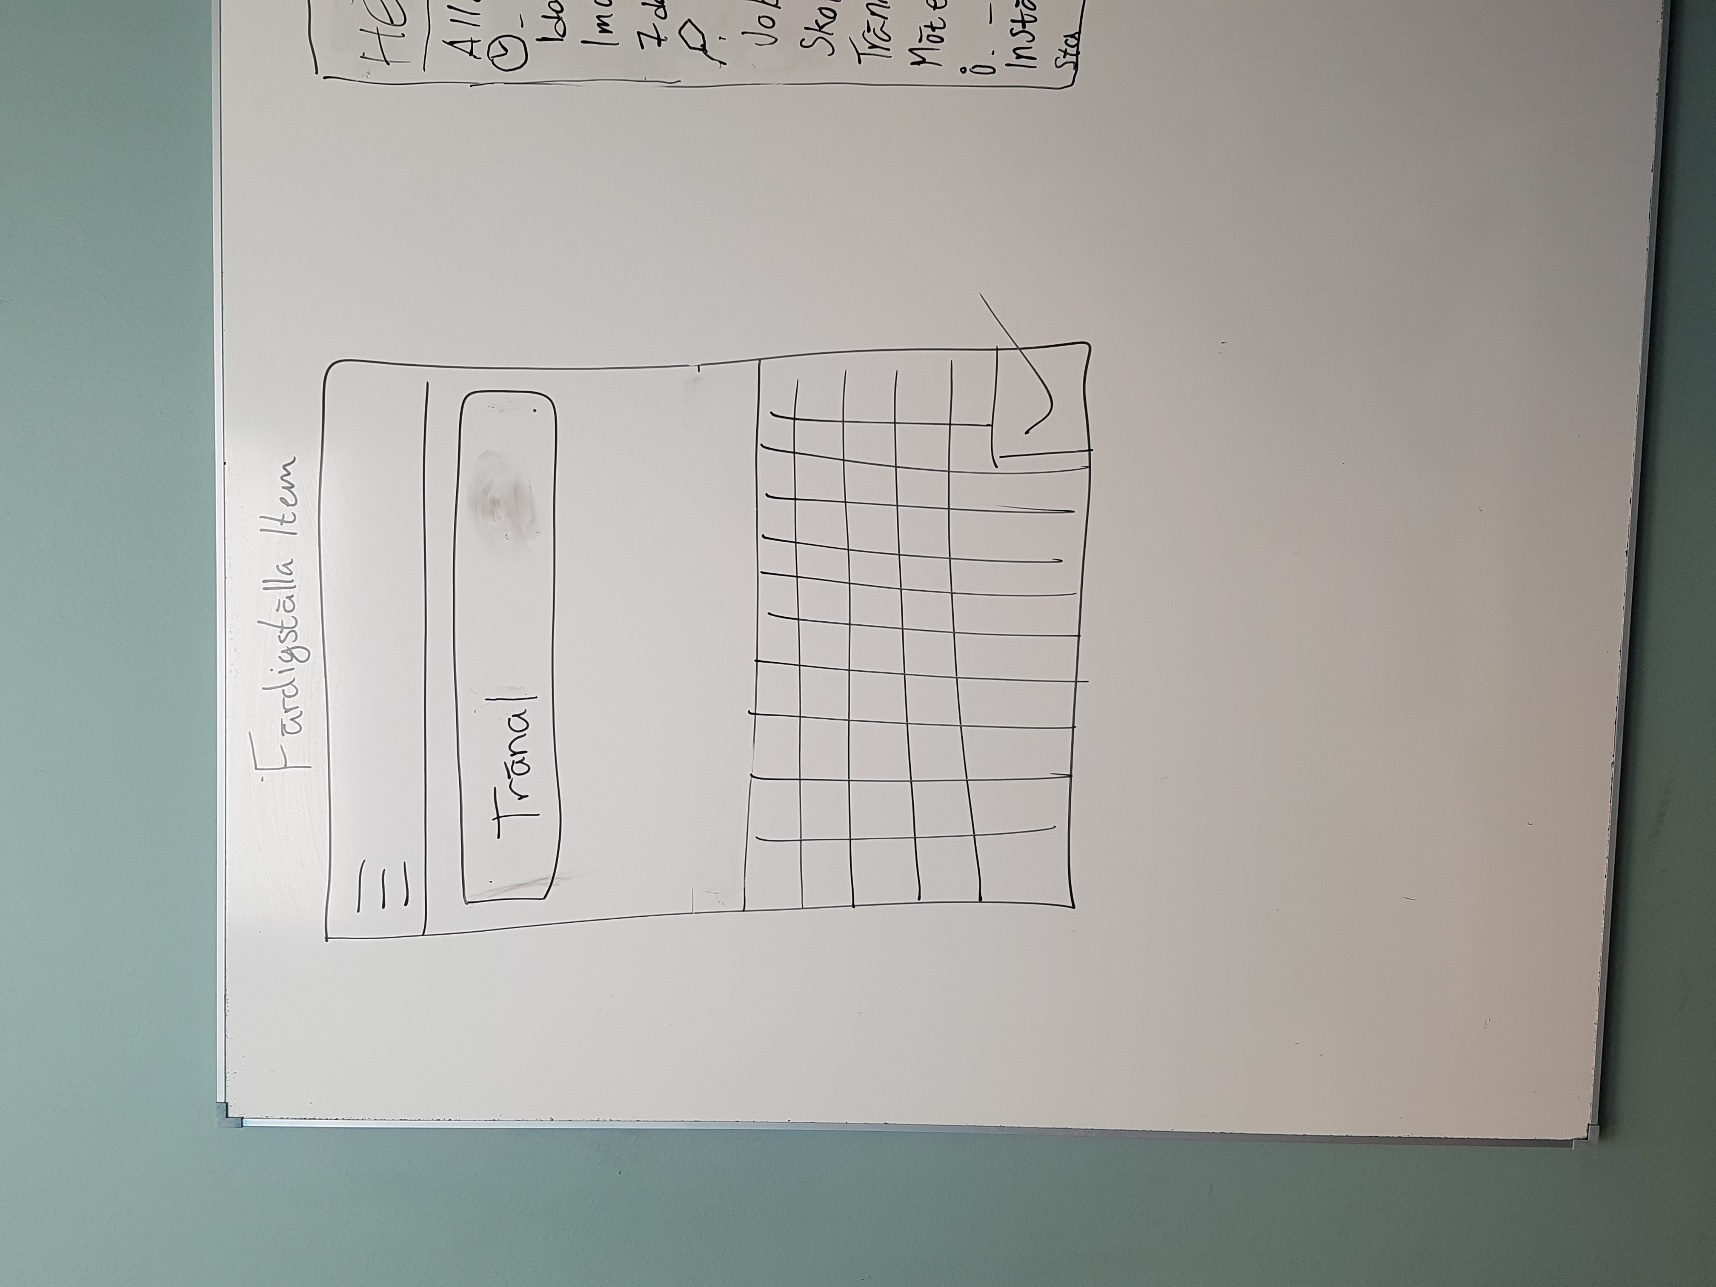 Färdigställa Item
Träna|
He
All
Ida
Imo
7 da
Job
Skol
Trän
Möte
Instä
Sta